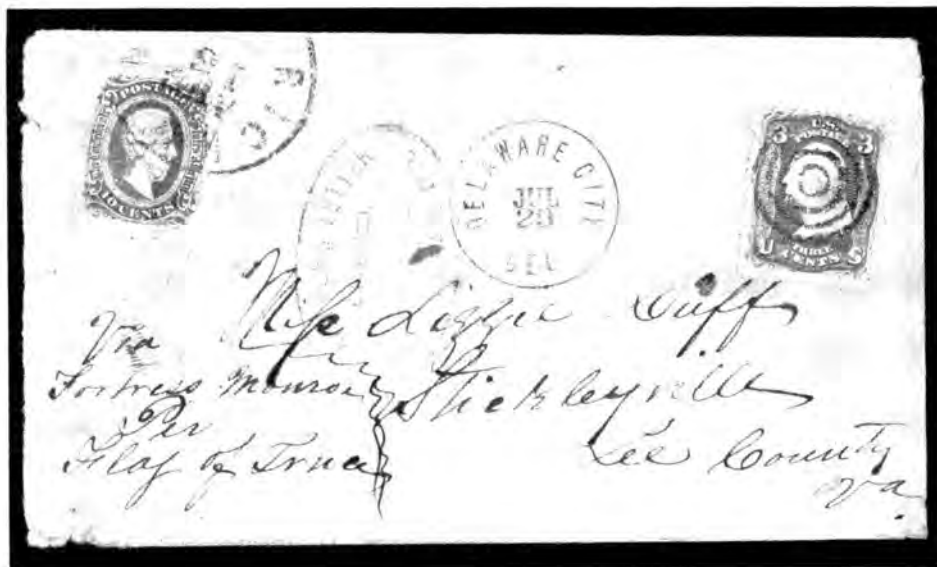 POSTAGE
10 CENTS
DELAWARE CITY
JUL
28
DEL
3 U.S. 3
POSTAGE
THREE
U CENTS S
Miss Lizzie Duff
Stickleyville
Lee County
Va.
Via
Fortress Monroe
Per
Flag of Truce